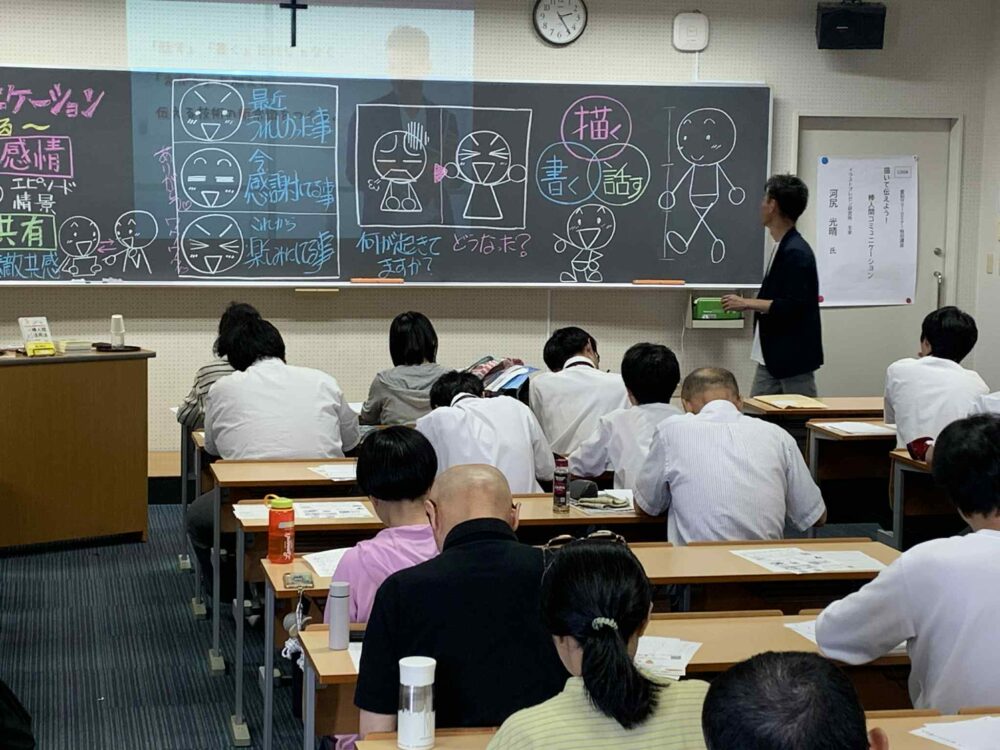 ケーション
る〜
感情
エピソード
情景
共有
共感
最近
うれしかった事
今
感謝してる事
これから
楽しみにしてる事
何が起きて
ますか?
どうなった?
描く
書く
話す
描いて伝えよう!
棒人間コミュニケーション
河尻 光晴 氏